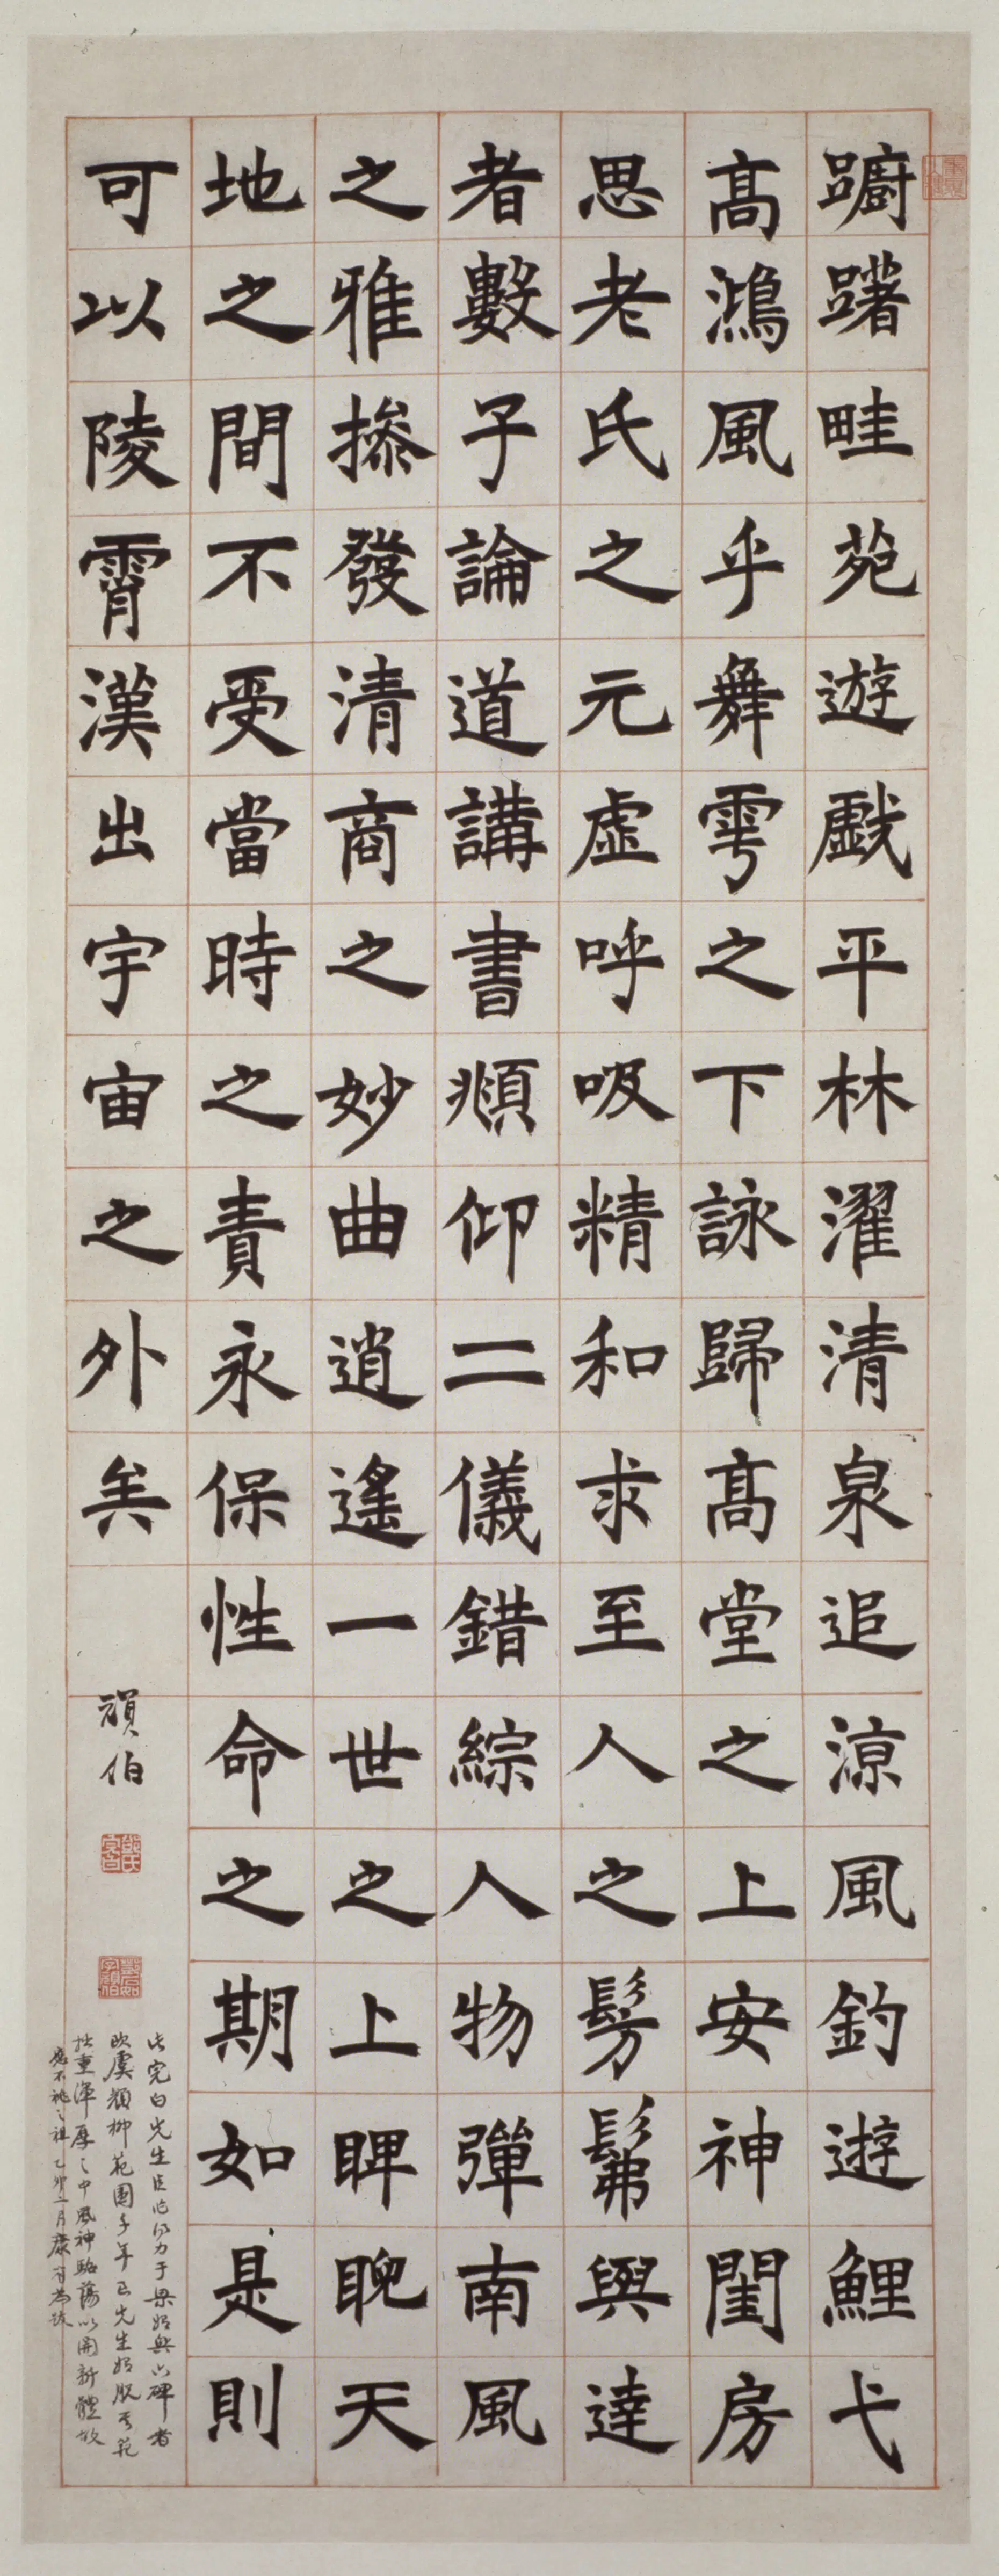 蹰躇畦苑遊戲平林濯清泉追涼風釣遊鯉弋
髙鴻風乎舞雩之下詠歸髙堂之上安神閨房
思老氏之元虛呼吸精和求至人之髣髴與達
者數子論道講書頫仰二儀錯綜人物彈南風
之雅摻發清商之妙曲逍遙一世之上睥睨天
地之間不受當時之責永保性命之期如是則
可以陵霄漢出宇宙之外矣
頑伯
鄧氏完白
鄧石如字頑伯
此完白先生巨作得力于梁始興六碑者
歐虞顏柳範圍千年至先生始脫其範
拙重渾厚之中風神駘蕩以開新體故
應不祧之祖乙卯二月康有為跋